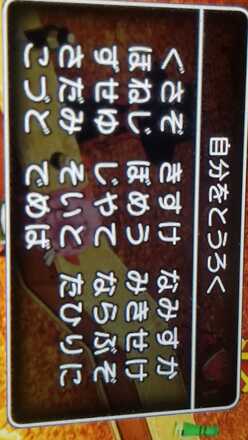 自分をとうろく
ぐさそ きすけ なみすか
ほねじ ぼめう みきせけ
すせゆ じやて ならぶぞ
さだみ そいと たひりに
こごど でめば